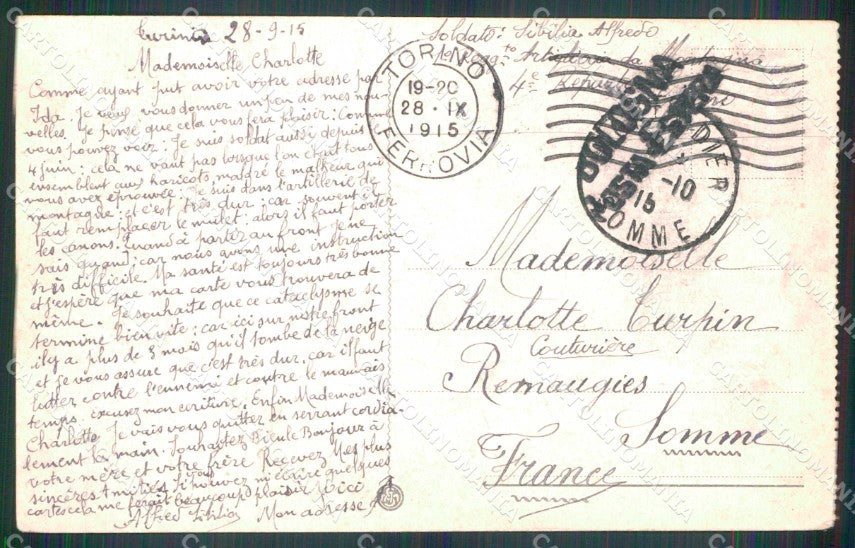 Turin 28-9-15
Mademoiselle Charlotte
Comme ayant put avoir votre adresse par
Ida. Je veux vous donner un peu de mes nou-
velles. Je pense que cela vous fera plaisir: Comme
vous pouvez voir: Je suis soldat aussi depuis
4 juin: cela ne vaut pas lorsque l'on était tous
ensemblent aux haricots, madré le malheur qui
vous avez éprouvée. Je suis dans l'artillerie de
montagne: et c'est très dur: car souvent il
faut remplacer le mulet: alors il faut porter
les canons. Quand à partez au front Je ne
sais quand: car nous avons une instruction
très difficile. Ma santé est toujours très bonne
et j'espère que ma carte vous trouvera de
même. Je souhaite que ce cataclysme se
termine bien vite: car ici sur notre front
il y a plus de 3 mois qu'il tombe de la neige
et Je vous assure que c'est très dur, car il faut
lutter contre l'ennemi et contre le mauvais
temps. excusez mon écriture. Enfin Mademoiselle
Charlotte Je vais vous quitter en serrant cordia-
lement la main. Souhaitez Bonjour à
votre mère et votre frère Recevez mes plus
sincères Amitiés. Si vous
pouvez m'écrire quelques
cartes cela me ferait beaucoup plaisir voici
Alfred Sibilia Mon adresse
Soldato: Sibilia Alfredo
1° Regg.to Artiglieria da Montagna
4e
TORINO
19-20
28 · IX
1915
FERROVIA
DIDIER
-10
15
SOMME
Mademoiselle
Charlotte Turpin
Couturière
Remaugies
Somme
France
CARTOLINOMANIA